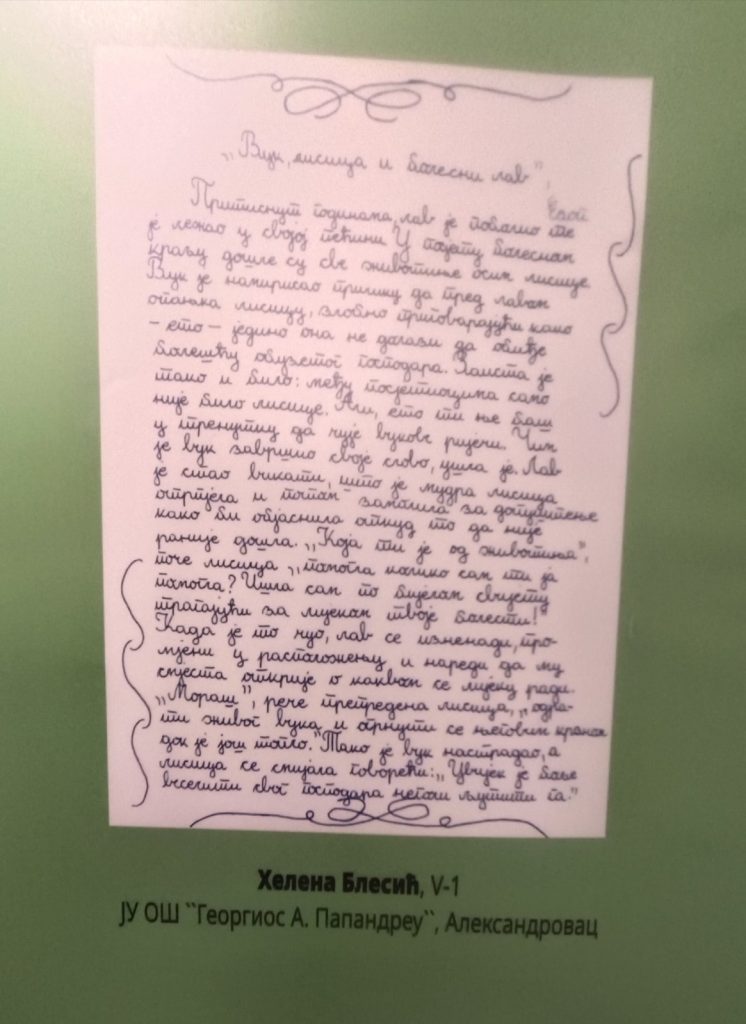 „Вук, лисица и болесни лав”
Притиснут годинама, лав је поболио те
је лежао у својој пећини. У посјету болесном
краљу дошле су све животиње осим лисице.
Вук је намирисао прилику да пред лавом
опањка лисицу, злобно приговарајући како
– ето – једино она не долази да обиђе
болешћу обузетог господара. Заиста је
тако и било: међу посјетиоцима само
није било лисице. Али, ето ти ње баш
у тренутку да чује вукове ријечи. Чим
је вук завршио своје слово, ушла је. Лав
је стао викати, што је мудра лисица
отрпјела и потом замолила за допуштење
како би објаснила откуд то да није
раније дошла. „Која ти је од животиња”,
поче лисица „помогла колико сам ти ја
помогла? Ишла сам по бијелом свијету
трагајући за лијеком твоје болести!”
Када је то чуо, лав се изненади, про-
мјени у расположењу и нареди да му
смјеста открије о каквом се лијеку ради.
„Мораш”, рече препредена лисица, „одра-
ти живог вука и огрнути се његовим крзном
док је још топло.” Тако је вук настрадао, а
лисица се смијала говорећи: „Увијек је боље
веселити свог господара него љутити га.”
Хелена Блесић, V-1
ЈУ ОШ ``Георгиос А. Папандреу``, Александровац